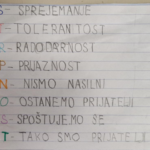 S - SPREJEMANJE
T - TOLERANTNOST
R - RADODARNOST
P - PRIJAZNOST
N - NISMO NASILNI
O - OSTANEMO PRIJATELJI
S - SPOŠTUJEMO SE
T - TAKO SMO PRIJATELJI